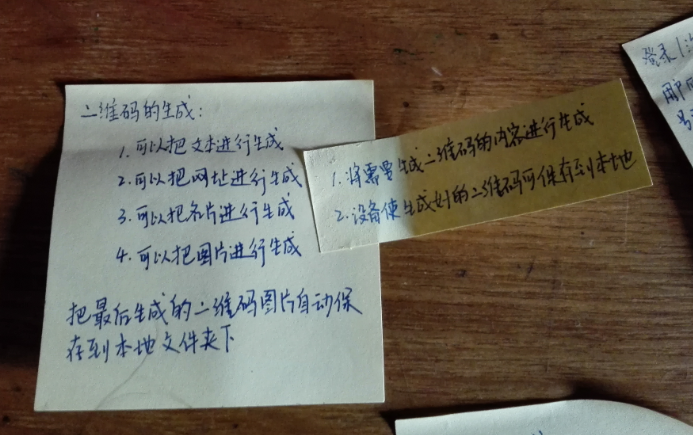 二维码的生成:
1. 可以把文本进行生成
2. 可以把网址进行生成
3. 可以把名片进行生成
4. 可以把图片进行生成
把最后生成的二维码图片自动保
存到本地文件夹下
1. 将需要生成二维码的内容进行生成
2. 设备使生成好的二维码可保存到本地
登录/
用户
号